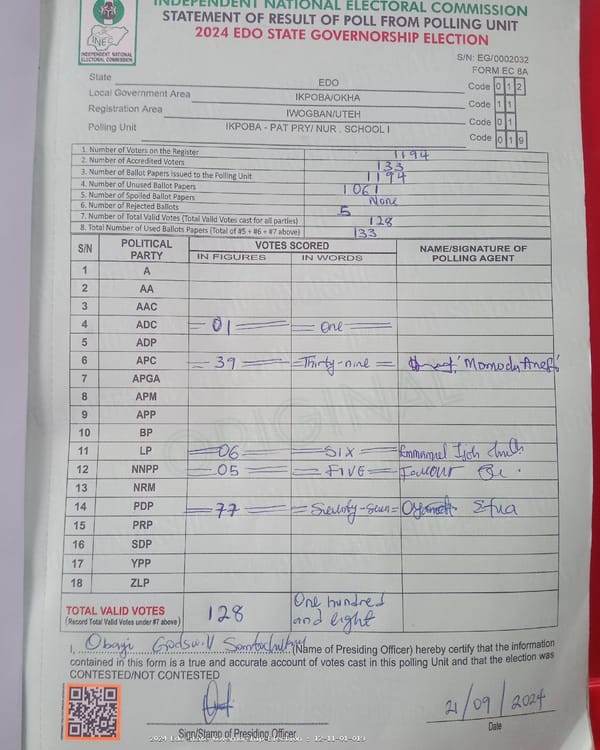 INDEPENDENT NATIONAL ELECTORAL COMMISSION
STATEMENT OF RESULT OF POLL FROM POLLING UNIT
2024 EDO STATE GOVERNORSHIP ELECTION
INEC
INDEPENDENT NATIONAL
ELECTORAL COMMISSION
S/N: EG/0002032
FORM EC 8A
State EDO Code 0 1 2
Local Government Area IKPOBA/OKHA Code 1 1
Registration Area IWOGBAN/UTEH Code 0 1
Polling Unit IKPOBA - PAT PRY/ NUR . SCHOOL I Code 0 1 9
1. Number of Voters on the Register 1194
2. Number of Accredited Voters 133
3. Number of Ballot Papers Issued to the Polling Unit 1194
4. Number of Unused Ballot Papers 1061
5. Number of Spoiled Ballot Papers None
6. Number of Rejected Ballots 5
7. Number of Total Valid Votes (Total Valid Votes cast for all parties) 128
8. Total Number of Used Ballots Papers (Total of #5 + #6 + #7 above) 133
S/N POLITICAL PARTY VOTES SCORED NAME/SIGNATURE OF POLLING AGENT
IN FIGURES IN WORDS
1 A
2 AA
3 AAC
4 ADC 01 one
5 ADP
6 APC 39 Thirty-nine Momodu
7 APGA
8 APM
9 APP
10 BP
11 LP 06 SIX Emmanuel
12 NNPP 05 FIVE Favour
13 NRM
14 PDP 77
15 PRP
16 SDP
17 YPP
18 ZLP
ORIGINAL
TOTAL VALID VOTES 128 One hundred
(Record Total Valid Votes under #7 above) and eight
I, Obayi Godswill (Name of Presiding Officer) hereby certify that the information
contained in this form is a true and accurate account of votes cast in this polling Unit and that the election was
CONTESTED/NOT CONTESTED
21/09/2024
Sign/Stamp of Presiding Officer Date